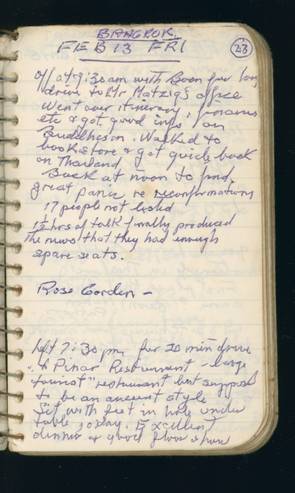 BANGKOK
FEB 13 FRI
23
Off at 9:30am with Boon for long
drive to Mr Matzig's office
Went over itinerary, finances
etc & got good info on
Buddhism. Walked to
bookstore & got guide book
on Thailand
Back at noon to find
great panic re reconfirmations
17 people not listed
1½ hrs of talk finally produced
the news that they had enough
spare seats.
Rose Garden -
left 7:30 pm for 20 min drive
to Pinar Restaurant - large
"tourist" restaurant but supposed
to be an ancient style
Sit with feet in hole under
table, okay. Excellent
dinner & good floor show